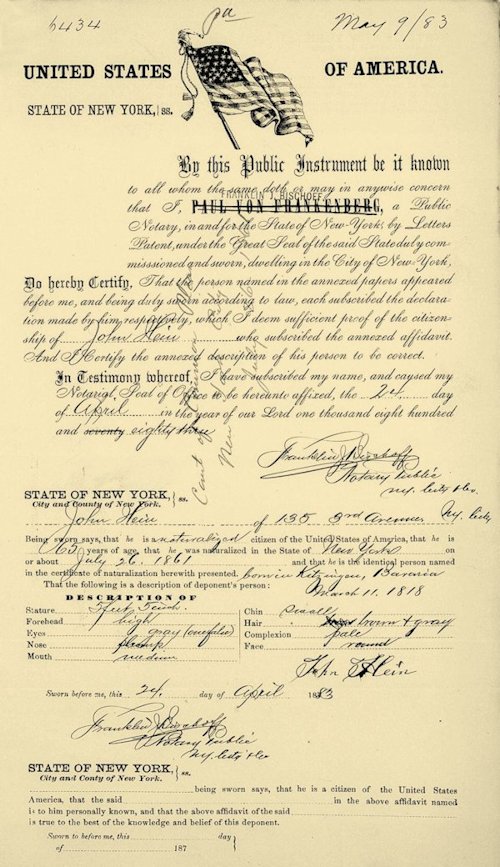 6434
May 9/83
UNITED STATES OF AMERICA.
STATE OF NEW YORK, } ss.
By this Public Instrument be it known
to all whom the same doth or may in anywise concern
FRANKLIN J. BISCHOFF
that I, PAUL VON FRANKENBERG, a Public
Notary, in and for the State of New-York, by Letters
Patent, under the Great Seal of the said State duly com-
misssioned and sworn, dwelling in the City of New-York,
Do hereby Certify, That the person named in the annexed papers appeared
before me, and being duly sworn according to law, each subscribed the declara-
tion made by him, respectively, which I deem sufficient proof of the citizen-
ship of John Hein who subscribed the annexed affidavit.
And I Certify the annexed description of his person to be correct.
In Testimony whereof, I have subscribed my name, and caused my
Notarial Seal of Office to be hereunto affixed, the 24 day
of April in the year of our Lord one thousand eight hundred
and seventy eighty three
Franklin J. Bischoff
Notary Public
N.Y. City & Co.
STATE OF NEW YORK, } ss.
City and County of New York.
John Hein of 135 3rd Avenue, N.Y. City
Being sworn, says, that he is a naturalized citizen of the United States of America, that he is
63 years of age, that he was naturalized in the State of New York on
or about July 26. 1861 and that he is the identical person named
in the certificate of naturalization herewith presented. born in Kitzingen, Bavaria
That the following is a description of deponent's person: March 11. 1818
DESCRIPTION OF
Stature 5 feet 5 inch. Chin small
Forehead high Hair brown & gray
Eyes gray Complexion pale
Nose Face round
Mouth medium
John Hein
Sworn before me, this 24 day of April 1883
Franklin J. Bischoff
Notary Public
N.Y. City & Co
STATE OF NEW YORK, } ss.
City and Conty of New York.
being sworn says, that he is a citizen of the United States
America, that the said in the above affidavit named
is to him personally known, and that the above affidavit of the said
is true to the best of the knowledge and belief of this deponent.
Sworn to before me, this day }
of 187